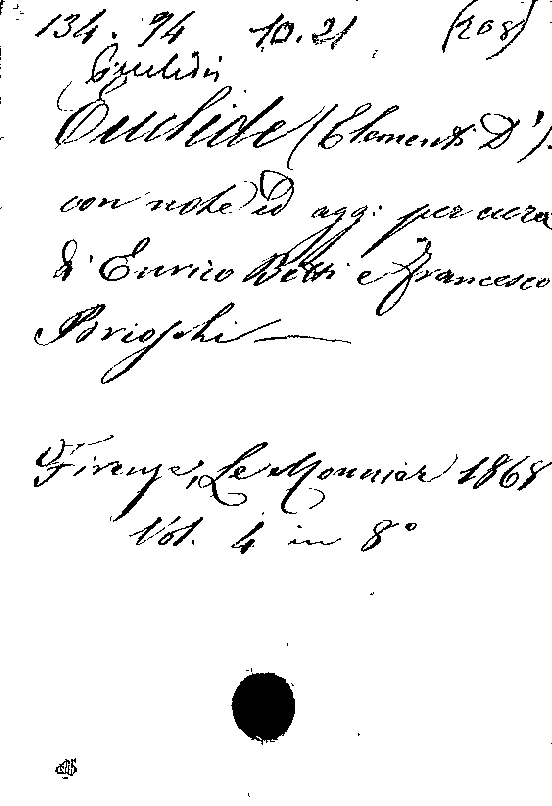 134. 94 10. 21 (rag)
Euclidis
Euclide (Elementi D').
con note ed agg: per cura
di Enrico Betti e Francesco
Brioschi —
Firenze, Le Monnier 1868
Vol. 4 in 8°